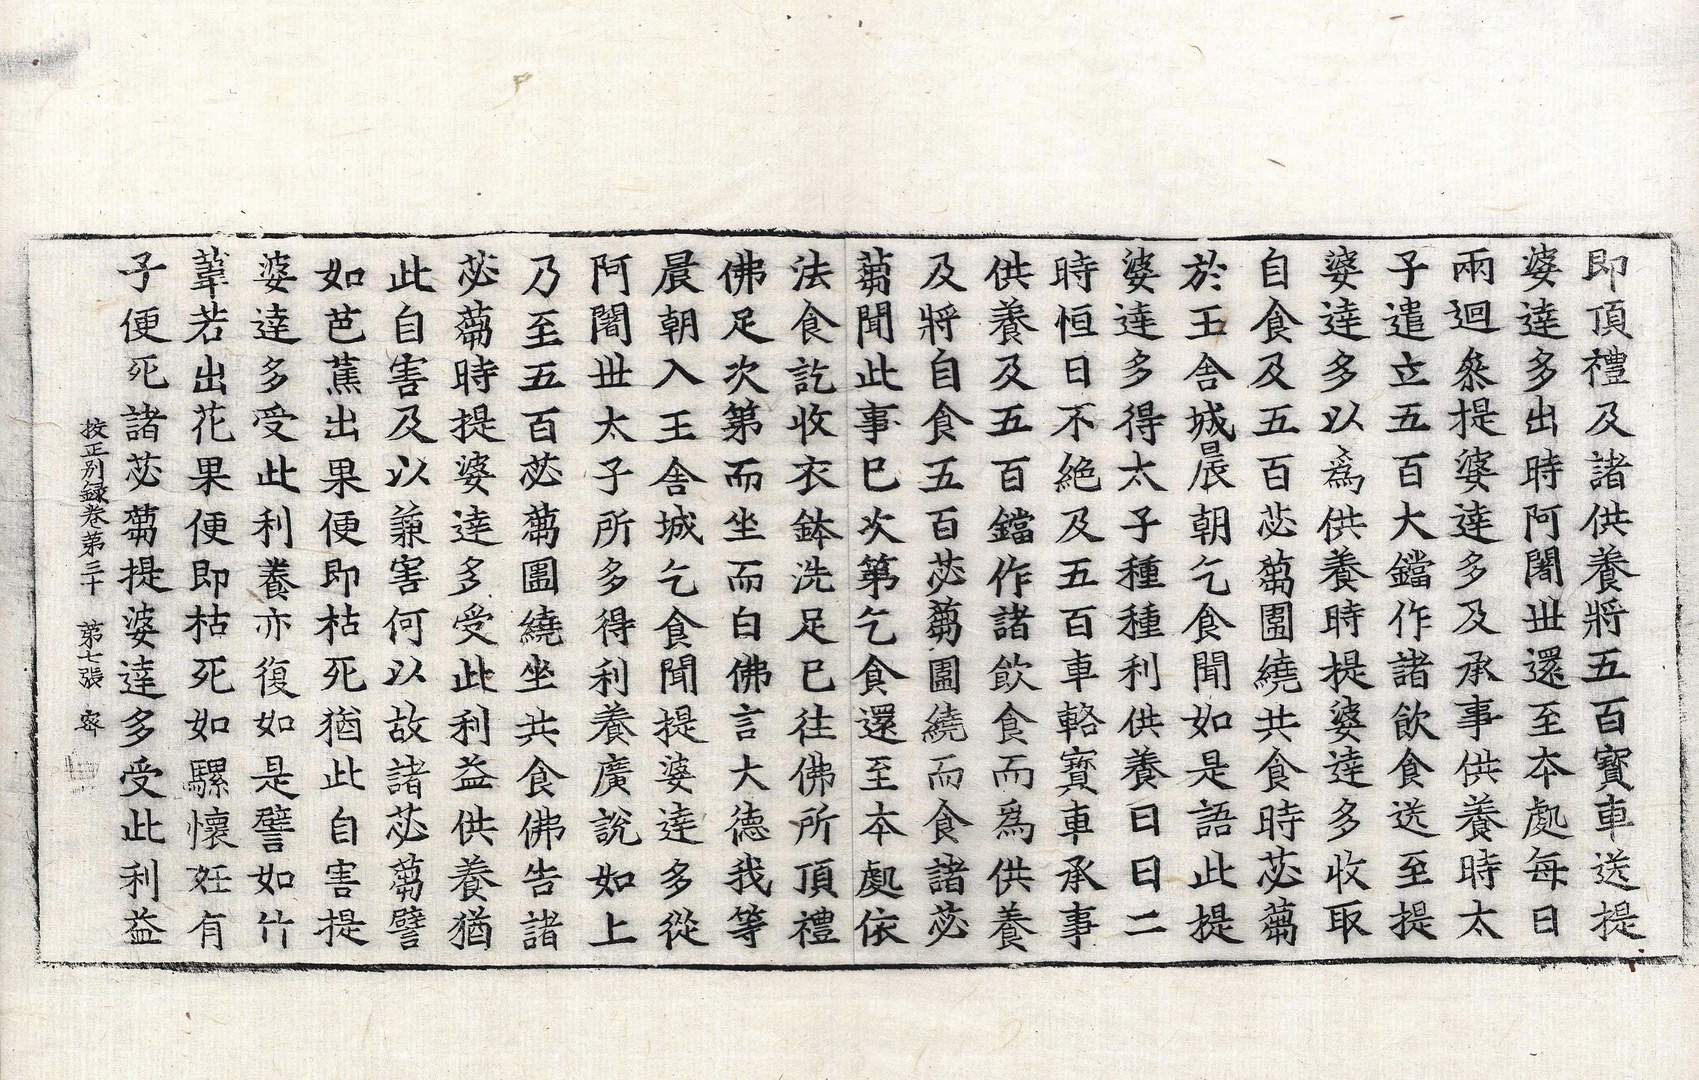 即頂禮及諸供養將五百寶車送提
婆達多出時阿闍世還至本處每日
兩迴叅提婆達多及承事供養時太
子遣立五百大鐺作諸飮食送至提
婆達多以爲供養時提婆達多收取
自食及五百苾蒭圍繞共食時苾蒭
於王舍城晨朝乞食聞如是語此提
婆達多得太子種種利供養日日二
時恒日不絶及五百車輅寶車承事
供養及五百鐺作諸飮食而爲供養
及將自食五百苾蒭圍繞而食諸苾
蒭聞此事已次第乞食還至本處依
法食訖收衣鉢洗足已往佛所頂禮
佛足次第而坐而白佛言大德我等
晨朝入王舍城乞食聞提婆達多從
阿闍世太子所多得利養廣說如上
乃至五百苾蒭圍繞坐共食佛告諸
苾蒭時提婆達多受此利益供養猶
此自害及以兼害何以故諸苾蒭譬
如芭蕉出果便即枯死猶此自害提
婆達多受此利養亦復如是譬如竹
葦若出花果便即枯死如騾懷妊有
子便死諸苾蒭提婆達多受此利益
挍正別録卷第三十　第七張　宻